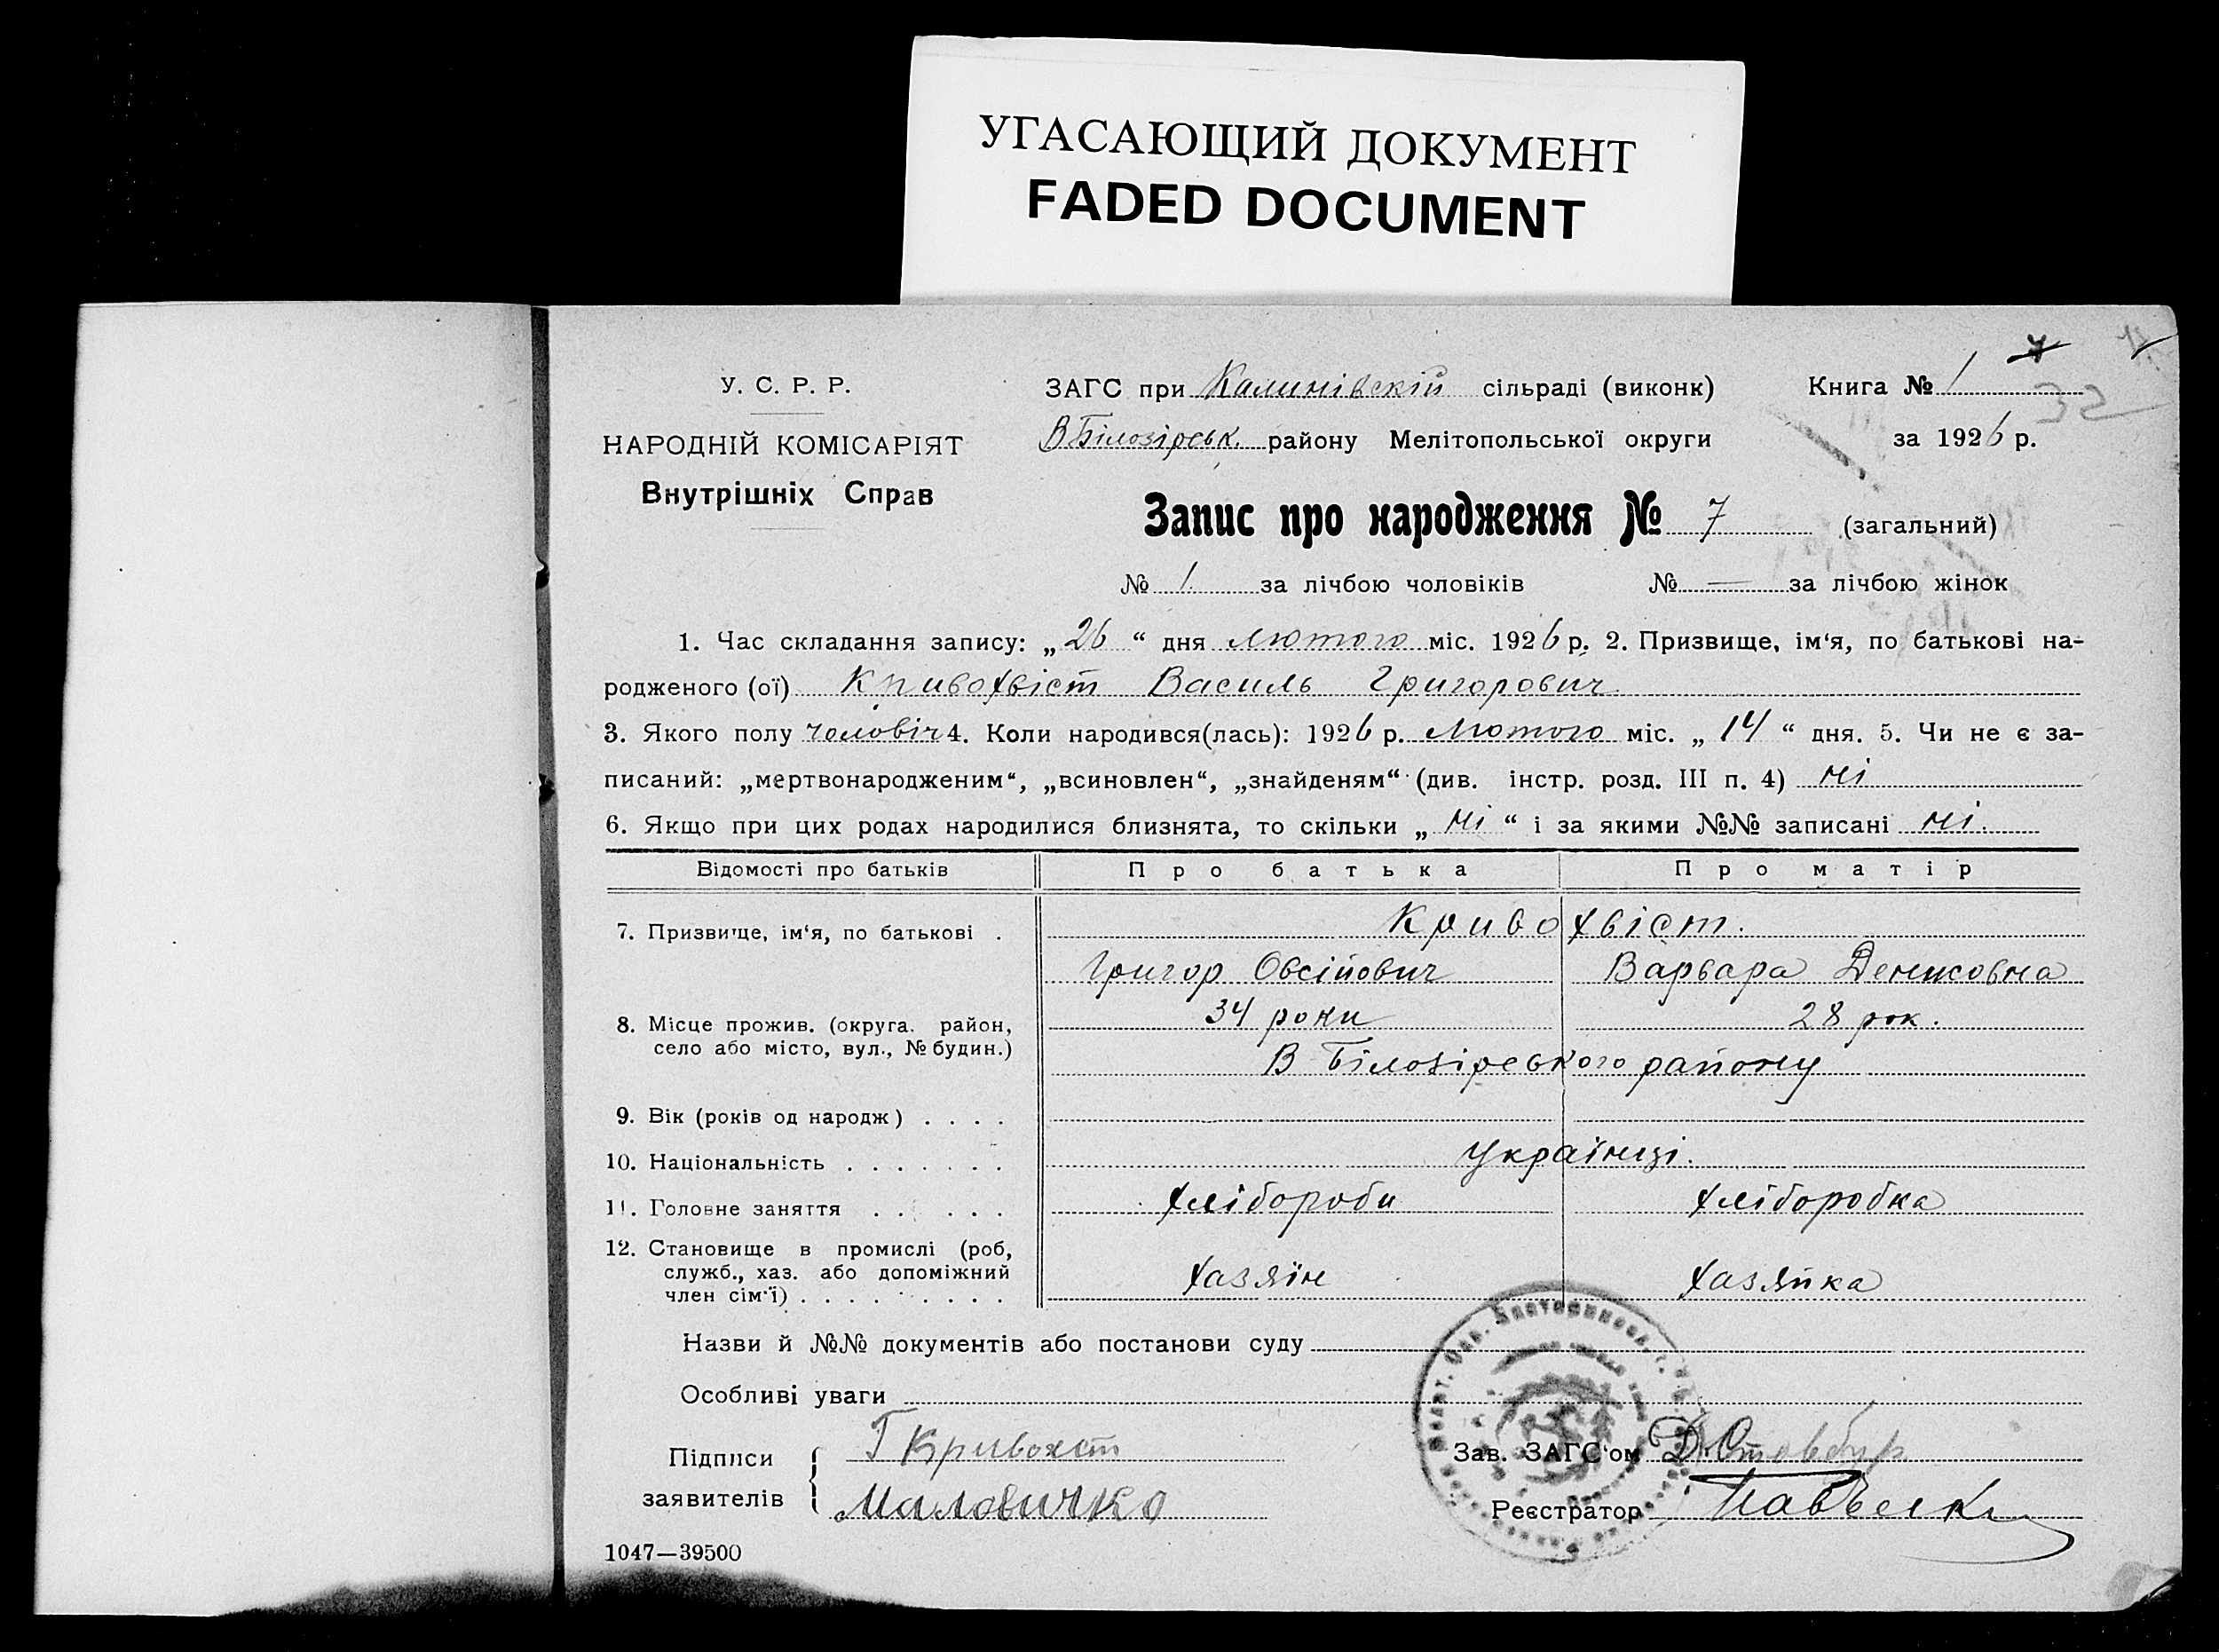 УГАСАЮЩИЙ ДОКУМЕНТ
FADED DOCUMENT
У. С. Р. Р.
НАРОДНІЙ КОМІСАРІЯТ
Внутрішніх Справ
ЗАГС при Калинівскій сільраді (виконк)
В Білозірськ. району Мелітопольської округи
Книга № 1
35
за 1926 р.
Запис про народження № 7 (загальний)
№ 1 за лічбою чоловіків № — за лічбою жінок
1. Час складання запису: „26“ дня Лютого міс. 1926 р. 2. Призвище, ім‘я, по батькові на-
родженого (ої) Кривохвіст Василь Григорович
3. Якого полу чоловіч 4. Коли народився(лась): 1926 р. Лютого міс. „14“ дня. 5. Чи не є за-
писаний: „мертвонародженим“, „всиновлен“, „знайденям“ (див. інстр. розд. III п. 4) ні
6. Якщо при цих родах народилися близнята, то скільки „ні“ і за якими №№ записані ні.
Відомості про батьків Про батька Про матір
7. Призвище, ім‘я, по батькові . Кривохвіст.
Григор Овсійович Варвара Денисовна
8. Місце прожив. (округа. район, 34 роки 28 рок.
село або місто, вул., № будин.) В Білозірського району
9. Вік (років од народж) . . . .
10. Національність . . . . . . . Українці.
11. Головне заняття . . . . . . хлібороби хліборобка
12. Становище в промислі (роб,
служб., хаз. або допоміжний хазяїн хазяйка
член сім‘ї) . . . . . . . . .
Назви й №№ документів або постанови суду
Особливі уваги
Підписи Г Кривохст Зав. ЗАГС‘ом Д. Стовбур
заявителів Маловичко Реєстратор
1047—39500